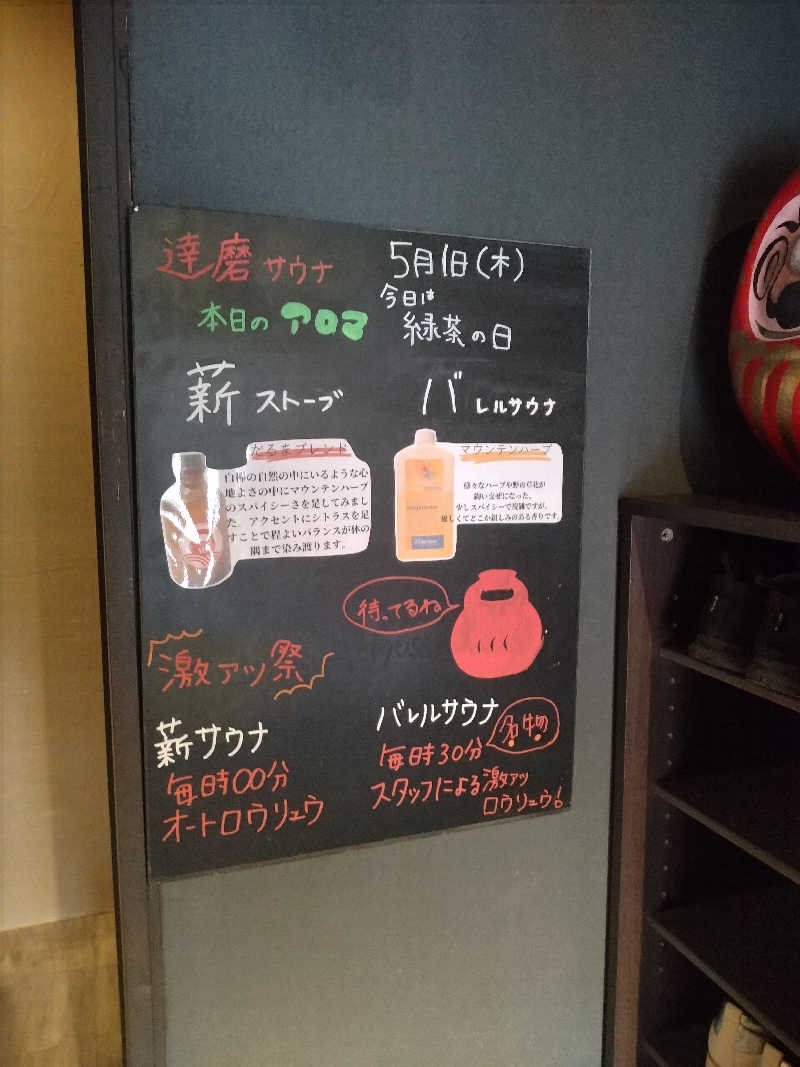 達磨サウナ
本日のアロマ
5月1日(木)
今日は
緑茶の日
薪ストーブ
だるまブレンド
白樺の自然の中にいるような心
地よさの中にマウンテンハーブ
のスパイシーさを足してみまし
た。アクセントにシトラスを足
すことで程よいバランスが体の
隅まで染み渡ります。
バレルサウナ
マウンテンハーブ
様々なハーブや野の草花が
織い交ぜになった、
少しスパイシーで複雑ですが、
優しくてどこか親しみのある香りです。
待ってるね
激アツ祭
薪サウナ
毎時00分
オートロウリュウ
バレルサウナ
名物
毎時30分
スタッフによる激アツ
ロウリュウ!